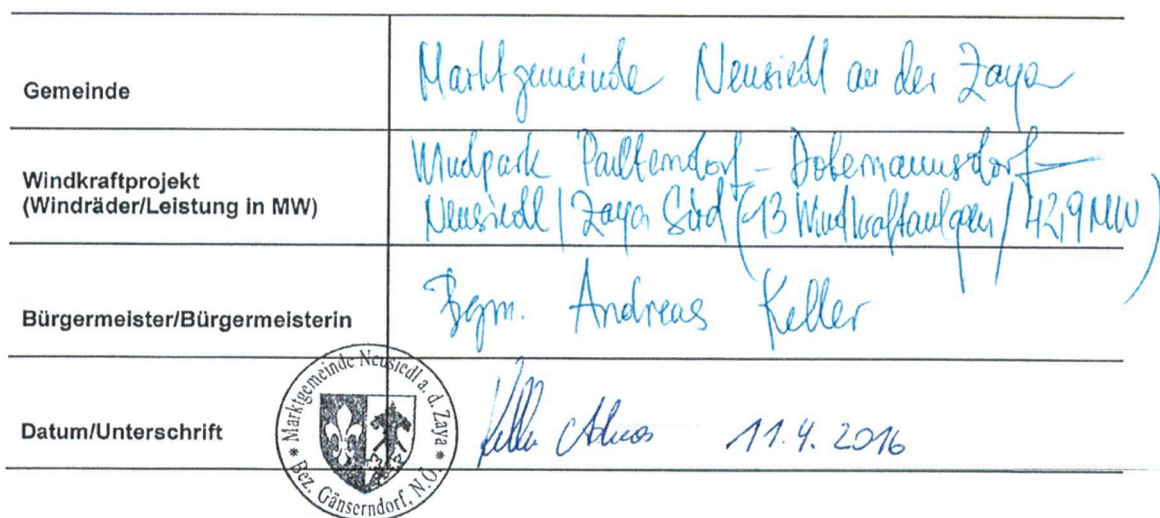 Gemeinde
Marktgemeinde Neusiedl an der Zaya
Windkraftprojekt
(Windräder/Leistung in MW)
Windpark Palterndorf-Dobermannsdorf-
Neusiedl/Zaya Süd (13 Windkraftanlagen/42,9 MW)
Bürgermeister/Bürgermeisterin
Bgm. Andreas Keller
Datum/Unterschrift
* Marktgemeinde Neusiedl a. d. Zaya *
Bez. Gänserndorf, N.Ö.
Keller Andreas 11.4.2016